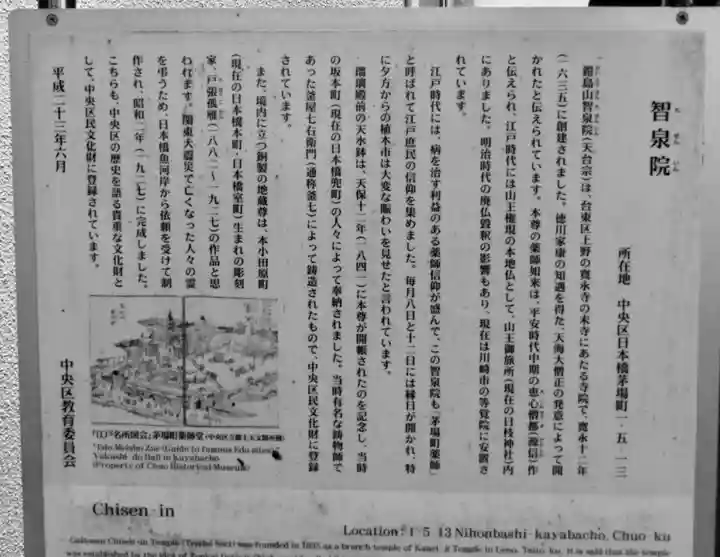 智泉院
所在地　中央区日本橋茅場町一-五-一三
鎧島山智泉院(天台宗)は、台東区上野の寛永寺の末寺にあたる寺院で、寛永十二年
(一六三五)に創建されました。徳川家康の知遇を得た、天海大僧正の発意によって開
かれたと伝えられています。本尊の薬師如来は、平安時代中期の恵心僧都(源信)作
と伝えられ、江戸時代には山王権現の本地仏として、山王御旅所(現在の日枝神社)内
にありました。明治時代の廃仏毀釈の影響もあり、現在は川崎市の等覚院に安置さ
れています。
江戸時代には、病を治す利益のある薬師信仰が盛んで、この智泉院も「茅場町薬師」
と呼ばれて江戸庶民の信仰を集めました。毎月八日と十二日には縁日が開かれ、特
に夕方からの植木市は大変な賑わいを見せたと言われています。
瑠璃殿前の天水鉢は、天保十二年(一八四一)に本尊が開帳されたのを記念し、当時
の坂本町(現在の日本橋兜町)の人々によって奉納されました。当時有名な鋳物師で
あった釜屋七右衛門(通称釜七)によって鋳造されたもので、中央区民文化財に登録
されています。
また、境内に立つ銅製の地蔵尊は、本小田原町
(現在の日本橋本町・日本橋室町)生まれの彫刻
家、戸張孤雁(一八八二～一九二七)の作品と思
われます。関東大震災で亡くなった人々の霊
を弔うため、日本橋魚河岸から依頼を受けて制
作され、昭和二年(一九二七)に完成しました。
こちらも、中央区の歴史を語る貴重な文化財と
して、中央区民文化財に登録されています。
平成二十三年六月
中央区教育委員会
『江戸名所図会』茅場町薬師堂(中央区立郷土天文館所蔵)
"Edo Meisho Zue (Guide to Famous Edo sites)"
Yakushi-do Hall in Kayabacho
(Property of Chuo Historical Museum)
Chisen-in
Location: 1-5-13 Nihonbashi-kayabacho, Chuo-ku
Chisen-in Temple (Tendai Sect) was founded in 1635 as a branch temple of Kanei-ji Temple in Ueno, Taito-ku. It is said that the temple
was established by the idea of